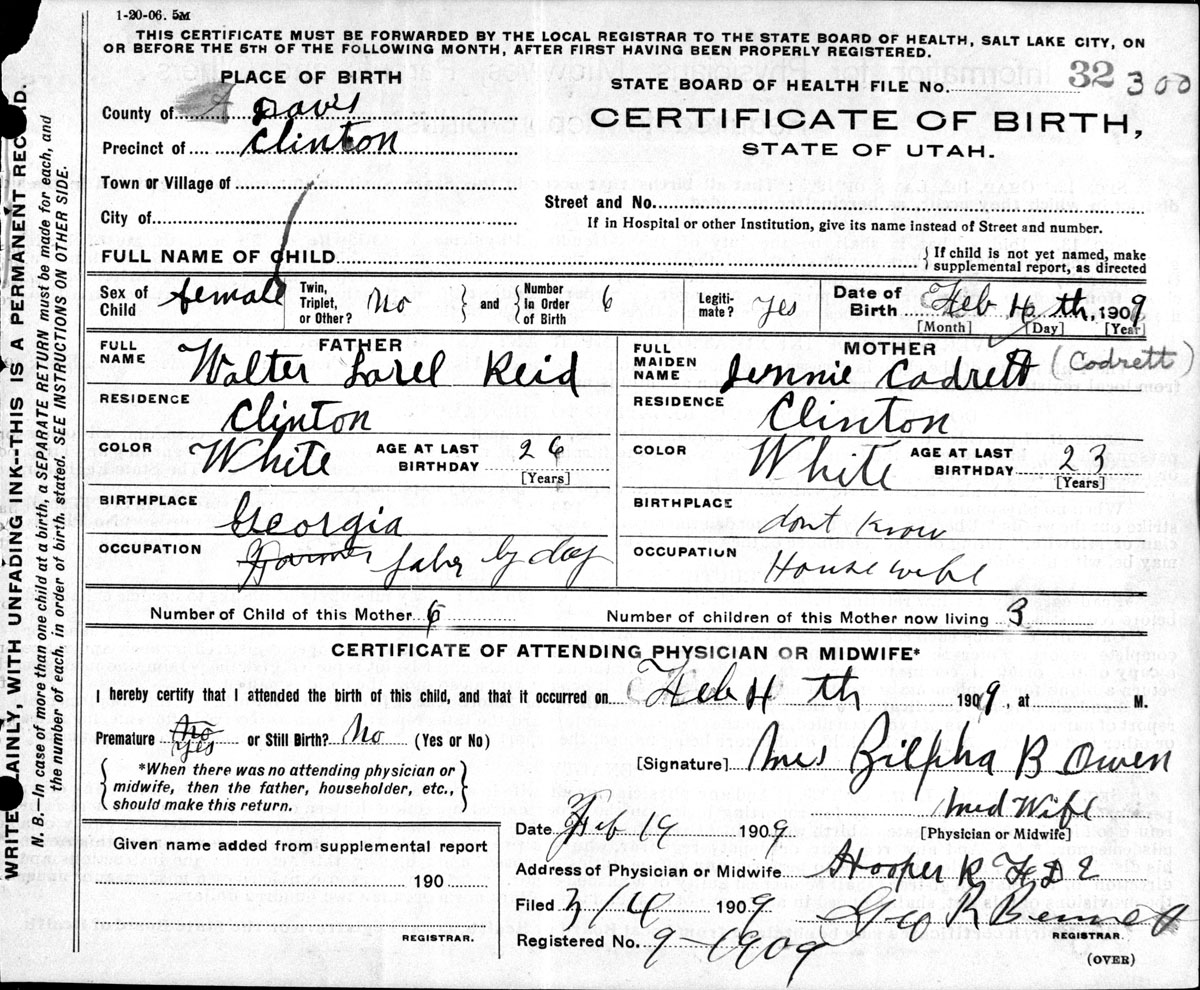 1-20-06. 5M
THIS CERTIFICATE MUST BE FORWARDED BY THE LOCAL REGISTRAR TO THE STATE BOARD OF HEALTH, SALT LAKE CITY, ON
OR BEFORE THE 5TH OF THE FOLLOWING MONTH, AFTER FIRST HAVING BEEN PROPERLY REGISTERED.
PLACE OF BIRTH
STATE BOARD OF HEALTH FILE No. 32 300
County of Davis
CERTIFICATE OF BIRTH,
Precinct of Clinton
STATE OF UTAH.
Town or Village of
Street and No.
City of
If in Hospital or other Institution, give its name instead of Street and number.
FULL NAME OF CHILD
If child is not yet named, make
supplemental report, as directed
Sex of Child female Twin, Triplet, or Other? No and Number In Order of Birth 6 Legiti-mate? yes Date of Birth Feb 4 th, 1909
[Month] [Day] [Year]
FATHER
MOTHER
FULL NAME Walter Lorel Reid
FULL MAIDEN NAME Jennie Codrett (Codrett)
RESIDENCE Clinton
RESIDENCE Clinton
COLOR White AGE AT LAST BIRTHDAY 26 [Years]
COLOR White AGE AT LAST BIRTHDAY 23 [Years]
BIRTHPLACE Georgia
BIRTHPLACE dont know
OCCUPATION Farmer by day
OCCUPATION Housewife
Number of Child of this Mother 6 Number of children of this Mother now living 3
CERTIFICATE OF ATTENDING PHYSICIAN OR MIDWIFE*
I hereby certify that I attended the birth of this child, and that it occurred on Feb 4 th 1909, at M.
Premature No yes or Still Birth? No (Yes or No)
[Signature] Mrs Zilpha B Owen
*When there was no attending physician or
midwife, then the father, householder, etc.,
should make this return.
Mid Wife
[Physician or Midwife]
Date Feb 19 1909
Given name added from supplemental report
190
REGISTRAR.
Address of Physician or Midwife Hooper R F D
Filed 3/4 1909 Geo R Bennett
REGISTRAR.
Registered No. 9-1909
(OVER)
WRITE PLAINLY, WITH UNFADING INK--THIS IS A PERMANENT RECORD.
N. B.--In case of more than one child at a birth, a SEPARATE RETURN must be made for each, and
the number of each, in order of birth, stated. SEE INSTRUCTIONS ON OTHER SIDE.